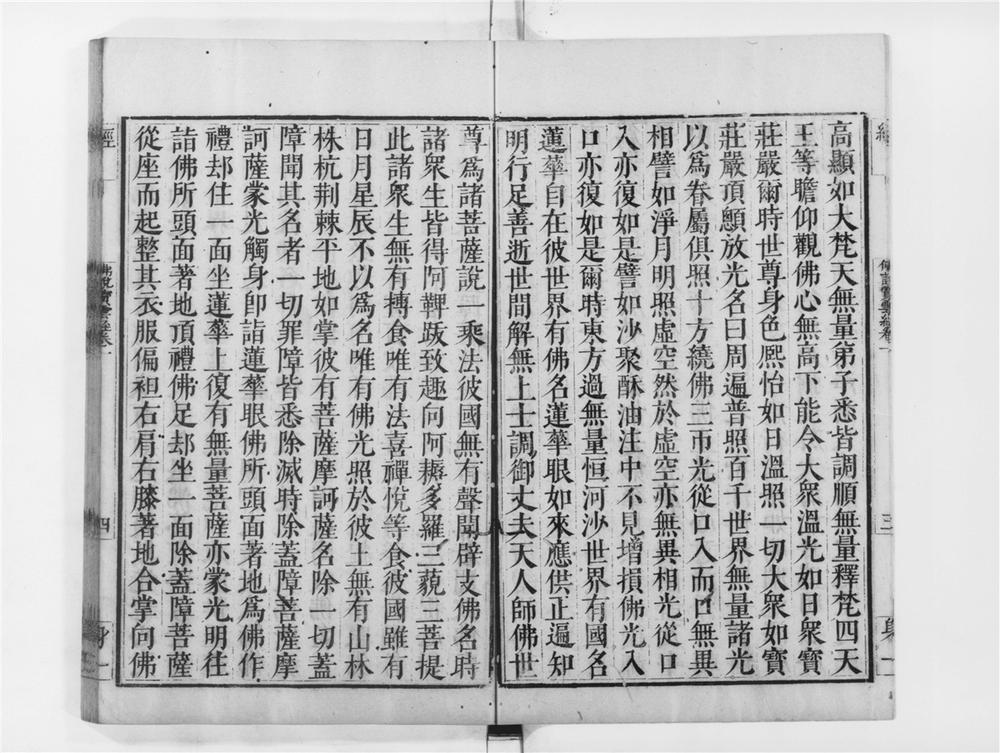 高顯如大梵天無量弟子悉皆調順無量釋梵四天
王等瞻仰觀佛心無高下能令大衆溫光如日衆寶
莊嚴爾時世尊身色熙怡如日溫照一切大衆如寶
莊嚴頂顖放光名曰周遍普照百千世界無量諸光
以爲眷屬俱照十方繞佛三帀光從口入而口無異
相譬如淨月明照虛空然於虛空亦無異相光從口
入亦復如是譬如沙聚酥油注中不見增損佛光入
口亦復如是爾時東方過無量恒河沙世界有國名
蓮華自在彼世界有佛名蓮華眼如來應供正遍知
明行足善逝世間解無上士調御丈夫天人師佛世
尊爲諸菩薩說一乘法彼國無有聲聞辟支佛名時
諸衆生皆得阿鞞跋致趣向阿耨多羅三藐三菩提
此諸衆生無有摶食唯有法喜禪悅等食彼國雖有
日月星辰不以爲名唯有佛光照於彼土無有山林
株杌荆棘平地如掌彼有菩薩摩訶薩名除一切蓋
障聞其名者一切罪障皆悉除滅時除蓋障菩薩摩
訶薩蒙光觸身卽詣蓮華眼佛所頭面著地爲佛作
禮却住一面坐蓮華上復有無量菩薩亦蒙光明往
詣佛所頭面著地頂禮佛足却坐一面除蓋障菩薩
從座而起整其衣服偏袒右肩右膝著地合掌向佛
經
佛說寶雲經卷一
三
身一
經
佛說寶雲經卷一
四
身一